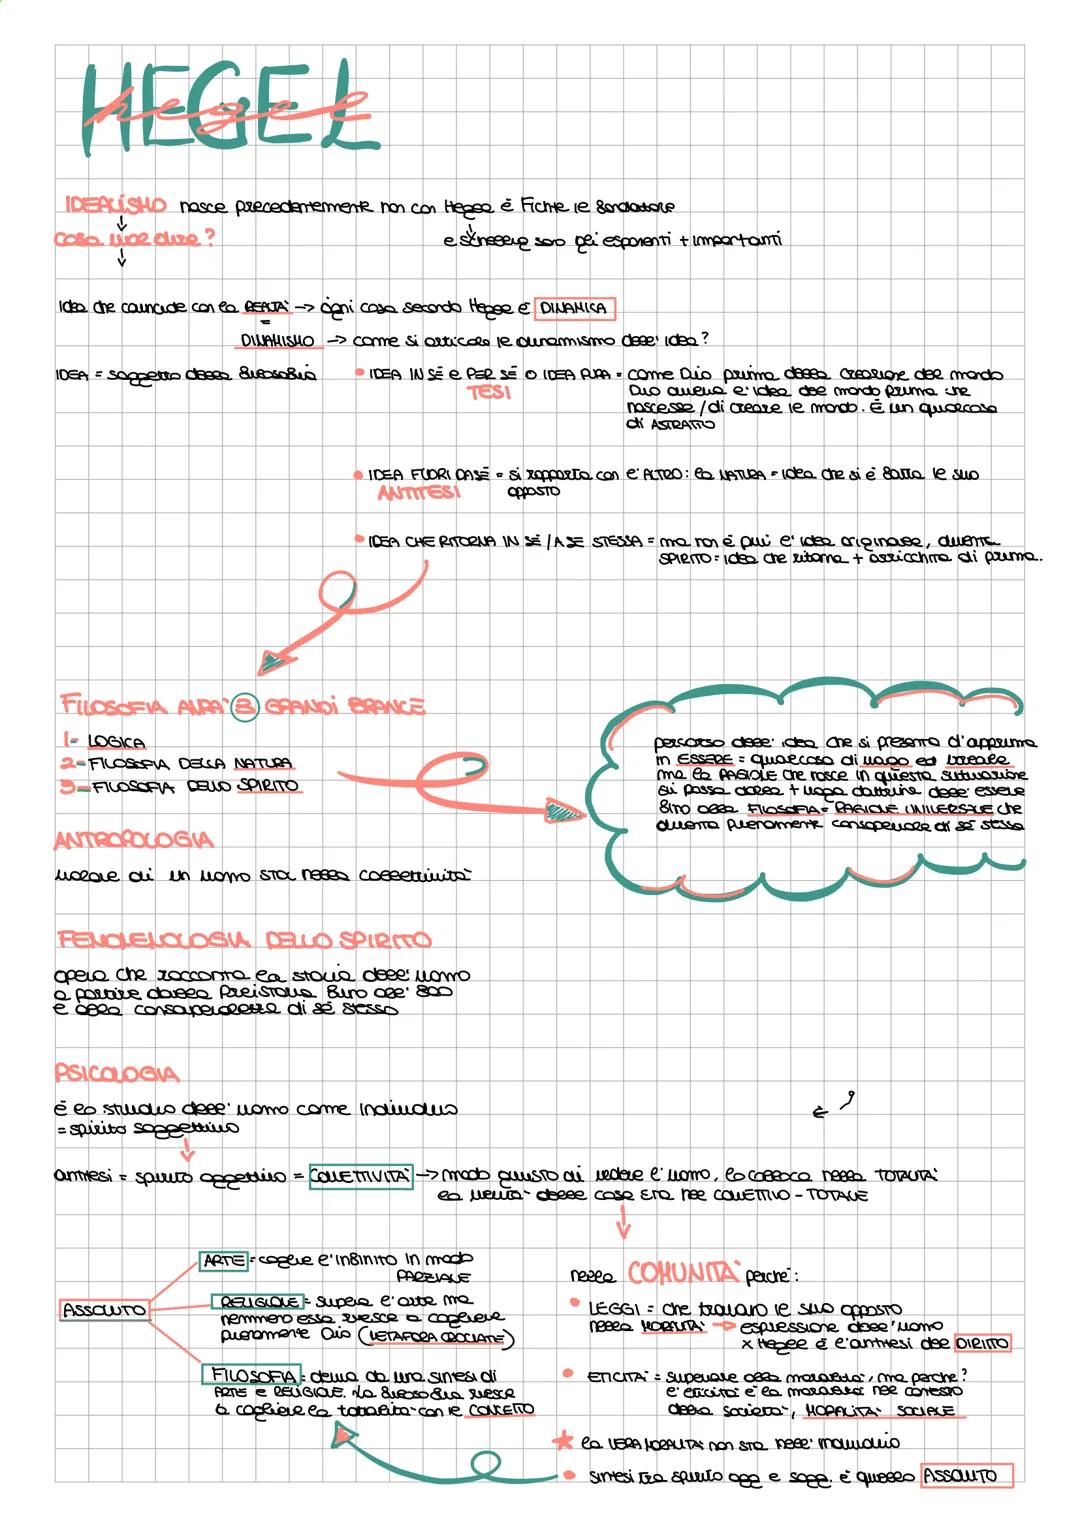 HEGEL
hegel
IDEALISMO nasce precedentemente non con Hegel è Fichte il fondatore
cosa vuol dire?
e Schelling sono gli esponenti + importanti
Idea che coincide con la REALTÀ -> ogni cosa secondo Hegel è DINAMICA
=
DINAMISMO -> come si articola il dinamismo dell'idea?
IDEA = soggetto della filosofia
• IDEA IN SÉ e PER SÉ O IDEA PURA = come Dio prima della creazione del mondo
TESI
Dio aveva l'idea del mondo prima che
nascesse / di creare il mondo. È un qualcosa
di ASTRATTO
• IDEA FUORI DA SÉ = si rapporta con l'ALTRO: la NATURA = idea che si è fatta il suo
ANTITESI opposto
• IDEA CHE RITORNA IN SÉ / A SE STESSA = ma non è più l'idea originale, diventa
SPIRITO = idea che ritorna + arricchita di prima.
FILOSOFIA AVRÀ 3 GRANDI BRANCE
1- LOGICA
2- FILOSOFIA DELLA NATURA
3- FILOSOFIA DELLO SPIRITO
percorso dell'idea che si presenta d'apprima
in ESSERE = qualcosa di vago ed
ma la RAGIONE che nasce in questa situazione
si passa dalla + vaga dell'essere
fino alla FILOSOFIA = RAGIONE UNIVERSALE che
diventa pienamente consapevole di sé stessa
ANTROPOLOGIA
valore di un uomo sta nella collettività
FENOMENOLOGIA DELLO SPIRITO
opera che racconta la storia dell'uomo
a partire dalla Preistoria fino all'800
e alla consapevolezza di sé stesso
PSICOLOGIA
è lo studio dell'uomo come individuo
= spirito soggettivo
antitesi = spirito oggettivo = COLLETTIVITÀ -> modo giusto di vedere l'uomo, lo colloca nella TOTALITÀ
la verità delle cose sta nel COLLETTIVO - TOTALE
ASSOLUTO
ARTE = coglie l'infinito in modo
PARZIALE
RELIGIONE = supera l'arte ma
nemmeno essa riesce a cogliere
pienamente Dio (METAFORA CROCIATE)
FILOSOFIA = deriva da una sintesi di
ARTE e RELIGIONE. La filosofia riesce
a cogliere la totalità con il CONCETTO
nella COMUNITÀ perché:
• LEGGI = che trovano il suo opposto
nella MORALITÀ -> espressione dell'uomo
x Hegel è l'antitesi del DIRITTO
• ETICITÀ = superiore alla moralità, ma perché?
l'eticità è la moralità nel contesto
della società, MORALITÀ SOCIALE
★ la VERA MORALITÀ non sta nell'individuo
• sintesi tra spirito ogg e sogg. è quello ASSOLUTO